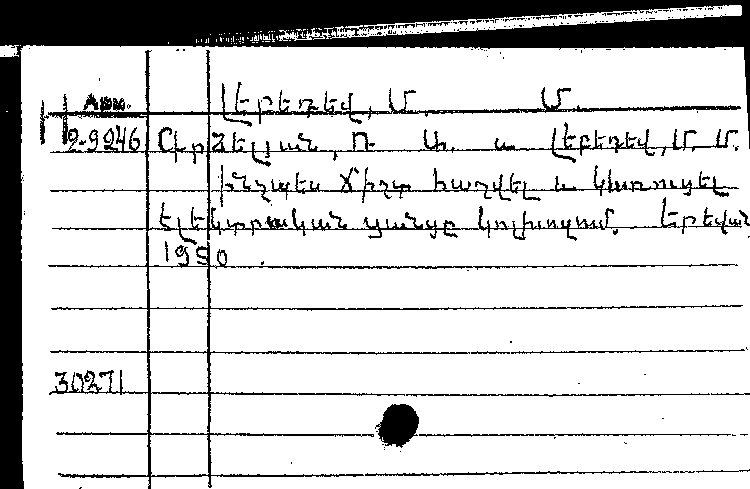 Արտ. Լեբեդեվ, Մ. Մ.
2-9246 Շիրջելյան, Ռ. Ա. և Լեբեդեվ, Մ. Մ.
ինչպես ճիշտ հաշվել և կառուցել
էլեկտրական ցանցը կոլխոզում. Երևան
1950.
30271